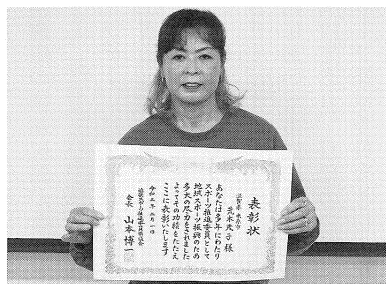 表彰状
様
あなたは多年にわたり
スポーツ推進委員として
地域スポーツ振興のため
多大の尽力をされました
よってその功績をたたえ
ここに表彰いたします
会長 山本博一